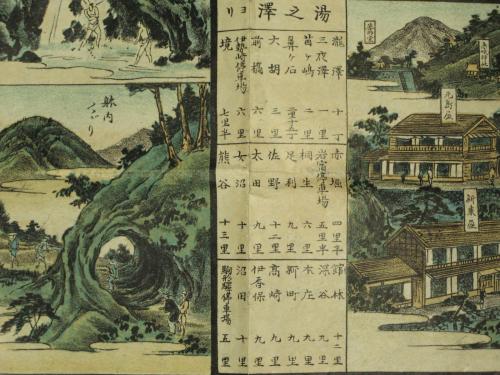 湯之澤ヨリ
瀧澤 十丁 赤堀 四里半 館林 十二里
三夜澤 一里 岩宿停車場 五里半 深谷 九里
苗ヶ嶋 二里 桐生 六里 本庄 九里
鼻ヶ石 足利 九里 新町 九里
大胡 三里 佐野 十二里 高崎 九里
前橋 六里 太田 九里 伊香保 九里
伊勢崎停車場 六里 女沼 十里 沼田 十里
境 七里半 熊谷 十三里 駒形驛停車場 五里
新東屋
躰内
くゞり